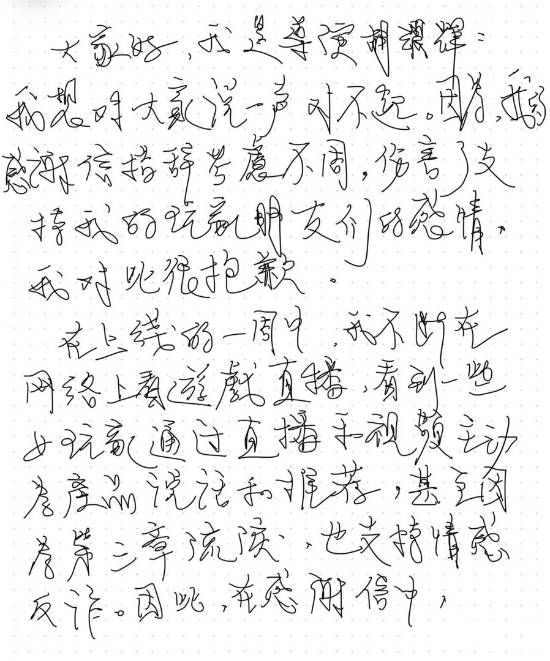 大家好，我是导演胡耀辉：
我想对大家说一声对不起。因为，我的
感謝信措辞考慮不周，伤害了支
持我的玩家朋友们的感情，
我对此很抱歉。
在上线的一周中，我不断在
网络上看遊戲直播，看到一些
女玩家通过直播和视频主动
為產品说话和推荐，甚至因
為第三章流淚，也支持情感
反诈。因此，在感谢信中，